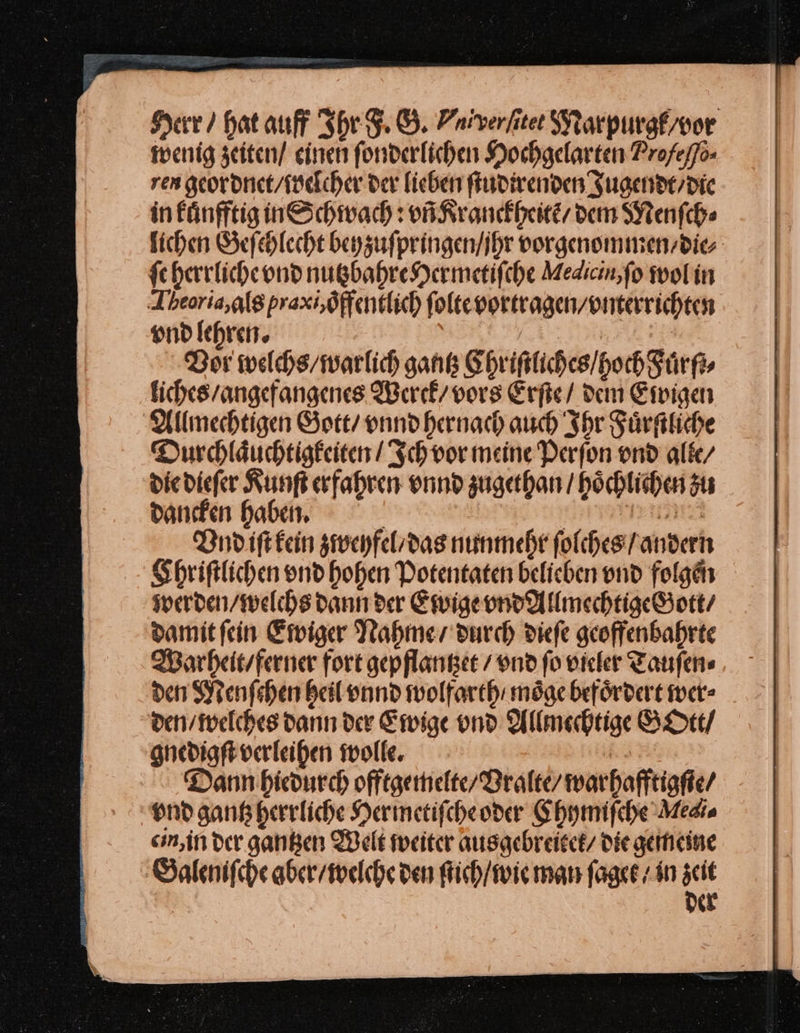 Herr / hat auff Ihr F. G. Vniverſitet Marpurgk / vor
wenig zeiten / einen ſonderlichen Hochgelarten Profeſſo⸗
ren geordnet / welcher der lieben ſtudirenden Jugendt / die
in kuͤnfftig in Schwach : vñ Kranckheitẽ / dem Menſch⸗
lichen Geſchlecht beyzuſpringen / jhr vorgenommen / die⸗
ſe herrliche vnd nutzbahre Hermetiſche Medicin, ſo wol in
Theoria, als praxi, oͤffentlich ſolte vortragen / vnterrichten
vnd lehren.
Vor welchs / warlich gantz Chriſtliches / hoch Fuͤrſt⸗
liches / angefangenes Werck / vors Erſte / dem Ewigen
Allmechtigen Gott / vnnd hernach auch Ihr Fuͤrſtliche
Durchlaͤuchtigkeiten / Ich vor meine Perſon vnd alle /
die dieſer Kunſt erfahren vnnd zugethan / hoͤchlichen zu
dancken haben.
Vnd iſt kein zweyfel / das nunmehr ſolches / andern
Chriſtlichen vnd hohen Potentaten belieben vnd folgen
werden / welchs dann der Ewige vnd Allmechtige Gott /
damit ſein Ewiger Nahme / durch dieſe geoffenbahrte
Warheit / ferner fort gepflantzet / vnd ſo vieler Tauſen⸗
den Menſchen heil vnnd wolfarth / moͤge befoͤrdert wer⸗
den / welches dann der Ewige vnd Allmechtige GOtt /
gnedigſt verleihen wolle.
Dann hiedurch offtgemelte / Vralte / warhafftigſte /
vnd gantz herrliche Hermetiſche oder Chymiſche Medi⸗
cin, in der gantzen Welt weiter ausgebreitet / die gemeine
Galeniſche aber / welche den ſtich / wie man ſaget / in zeit
der